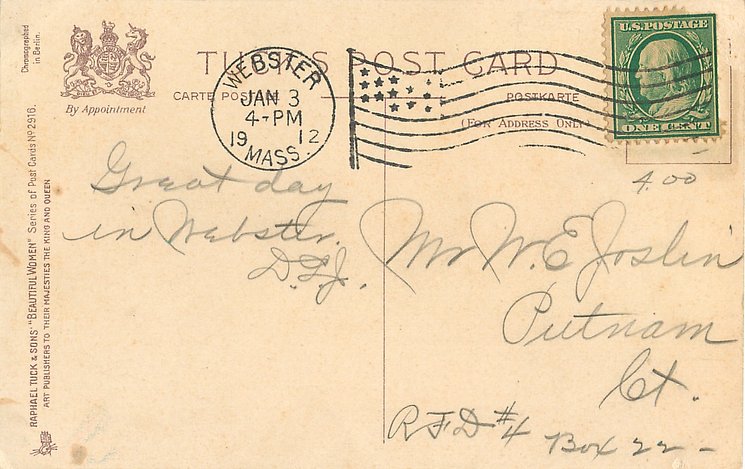 Chromographed
in Berlin.
By Appointment
RAPHAEL TUCK & SONS' "BEAUTIFUL WOMEN" Series of Post Cards Nº 2916.
ART PUBLISHERS TO THEIR MAJESTIES THE KING AND QUEEN
TUCK'S POST CARD
CARTE POSTALE
POSTKARTE
(FOR ADDRESS ONLY)
WEBSTER
JAN 3
4-PM
1912
MASS.
U.S. POSTAGE
ONE CENT
4.00
Great day
in Webster.
D.L.J.
Mr W. E. Joslin
Putnam
Ct.
R.F.D #4 Box 22-